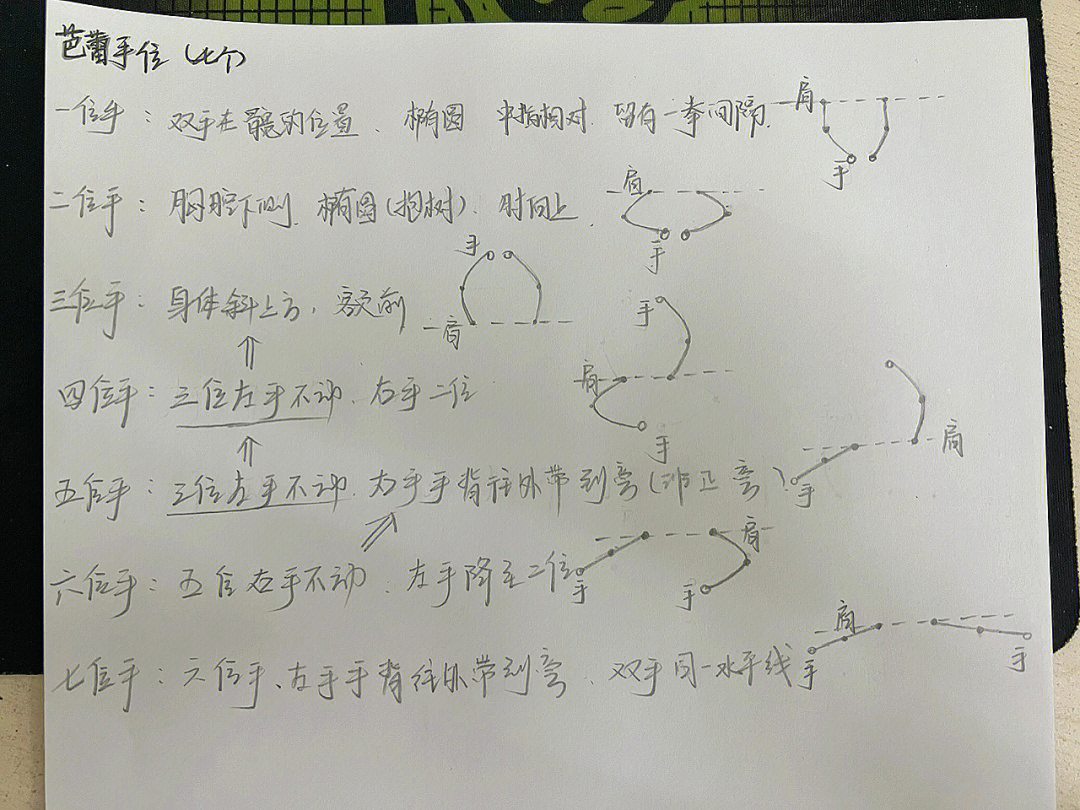 芭蕾手位（七个）
一位手：双手在髋的位置、椭圆 中指相对 留有一拳间隔. 肩
手
二位手：胸腔下侧、椭圆（抱树）、肘向上. 肩
手
手
三位手：身体斜上方，额前 肩
手
四位手：三位左手不动、右手二位 肩
手
肩
五位手：三位左手不动、右手手背往外带到旁（非正旁）. 手
肩
六位手：五位右手不动、左手降至二位 手 手
肩
七位手：六位手、左手手背往外带到旁、双手同一水平线 手 手